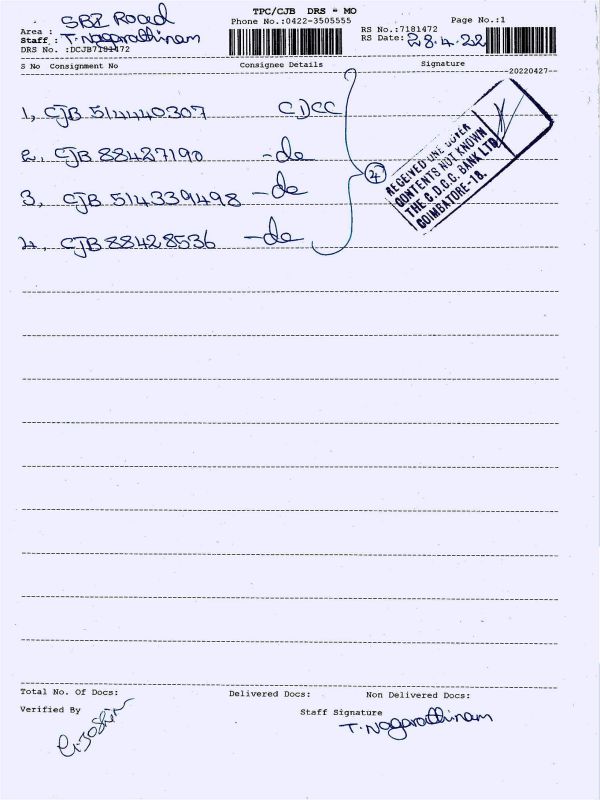 TPC/CJB DRS - MO
SBI Road
Area :
Phone No.:0422-3505555
Page No.:1
Staff : T. Nagarathinam
RS No.:7181472
DRS No. :DCJB7181472
RS Date: 28.4.22
S No Consignment No Consignee Details Signature
--20220427--
1, CJB 514440307 CDCC
2, CJB 88427190 -do
3, CJB 514339498 -do
4, CJB 88428536 -do
4
RECEIVED ONE COVER
CONTENTS NOT KNOWN
THE C.D.C.C. BANK LTD
COIMBATORE-18.
Total No. Of Docs: Delivered Docs: Non Delivered Docs:
Verified By Staff Signature
T. Nagarathinam